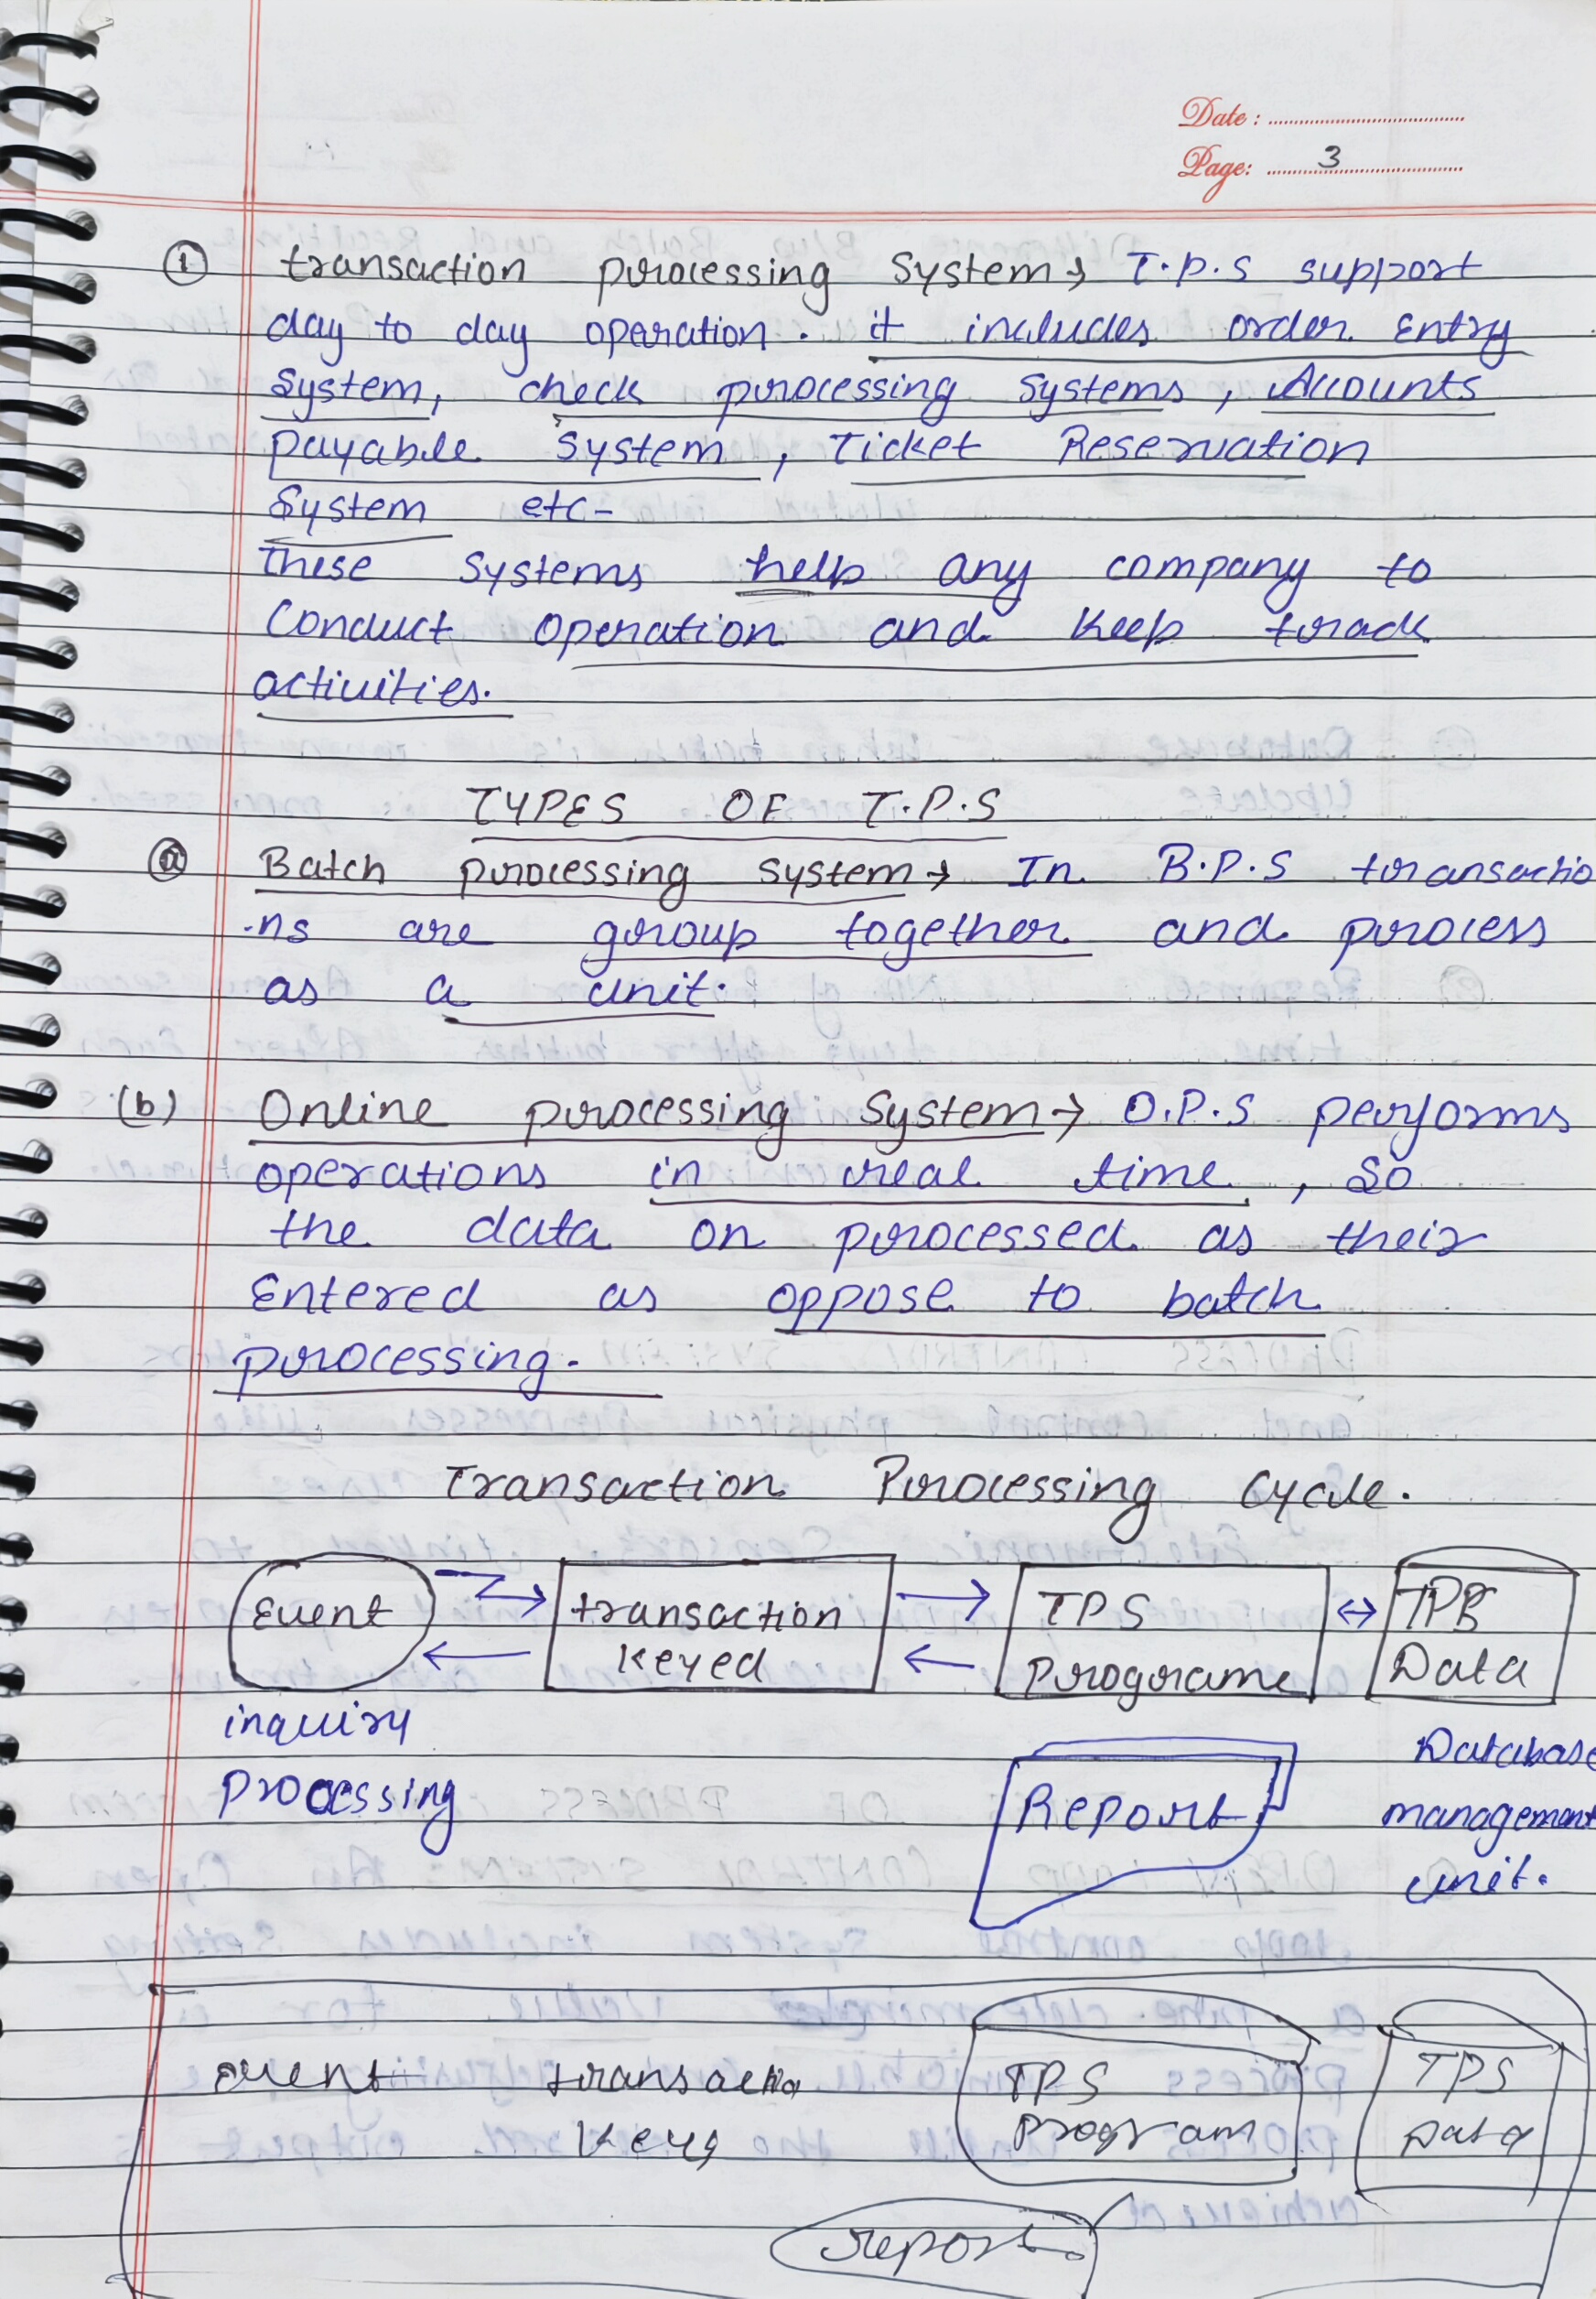 Date :
Page: 3
① transaction processing System→ T.P.S support
day to day operation. it includes order Entry
System, check processing Systems, Accounts
payable System, Ticket Reservation
System etc-
These Systems help any company to
Conduct operation and keep track
activities.
TYPES OF T.P.S
ⓐ Batch processing System→ In B.P.S transactio
-ns are group together and process
as a unit.
(b) Online processing System→ O.P.S performs
operations in real time, So
the data on processed as their
Entered as oppose to batch
processing.
Transaction Processing Cycle.
Event transaction TPS
Keyed programe Data
inquiry
processing
Report
Database
management
unit.
event transactio TPS TPS
Keys program Data
report